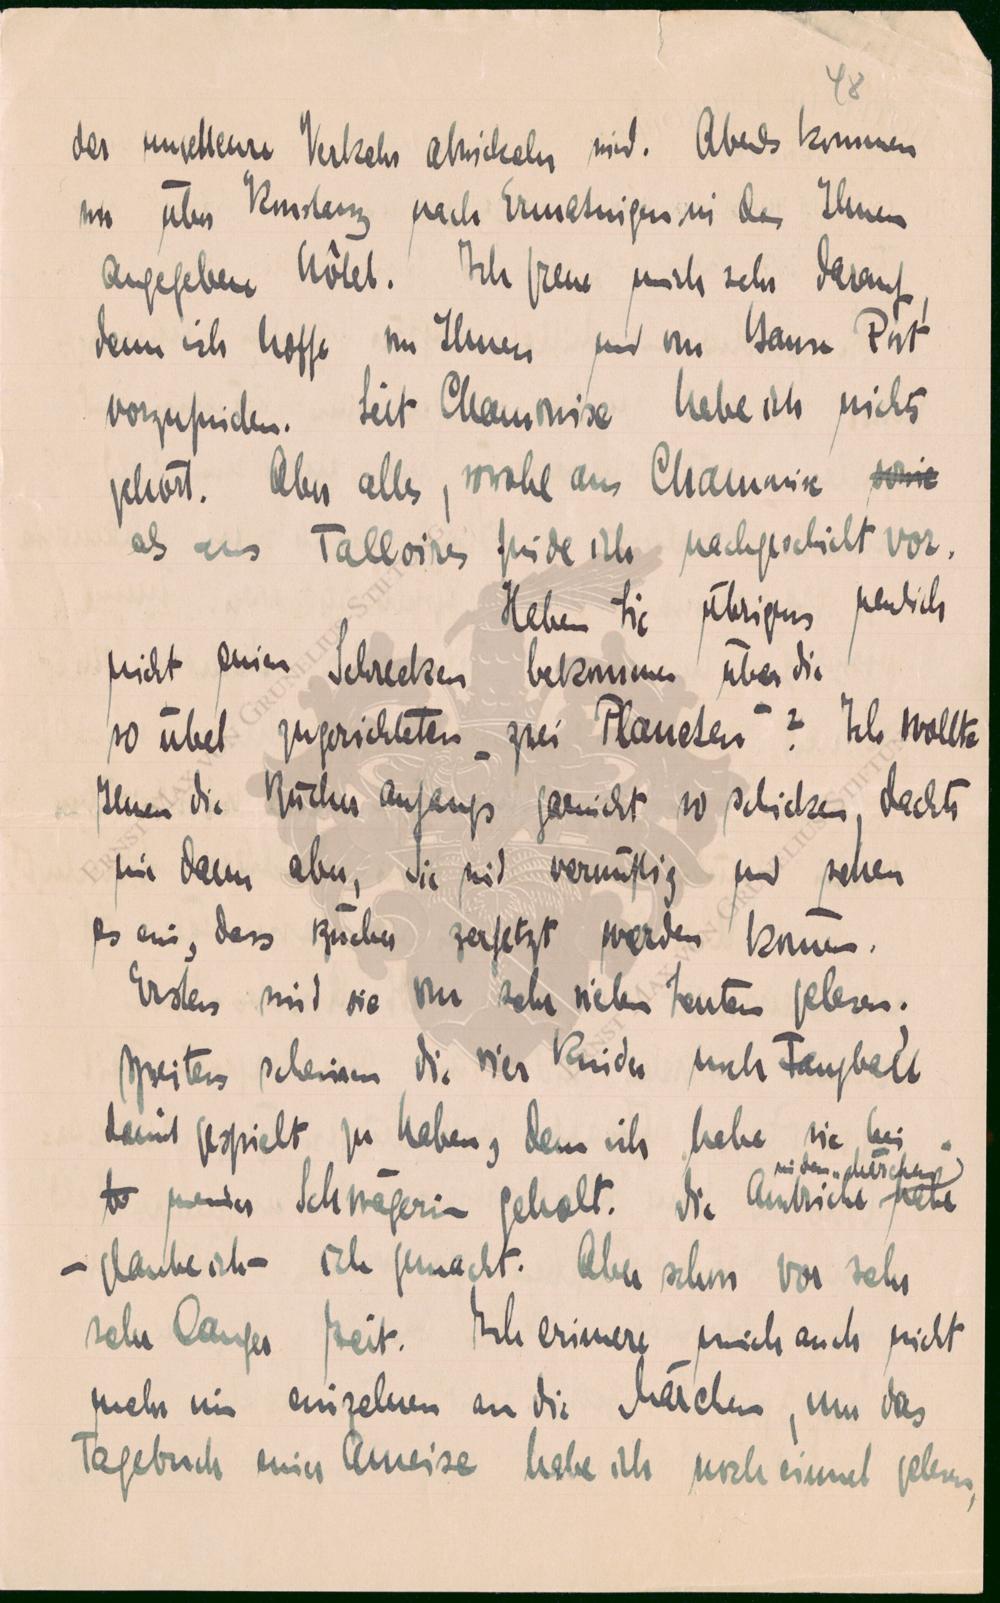 48
der ungeheure Verkehr abwickeln wird. Abends kommen
wir über Konstanz nach Ermatingen in das Ihnen
angegebene Hôtel. Ich freue mich sehr darauf,
denn ich hoffe von Ihnen und von Hause Post
vorzufinden. Seit Chamonise habe ich nichts
gehört. Aber alles, sowohl aus Chamonise sowie
als aus Talloires finde ich nachgeschickt vor.
Haben Sie übrigens neulich
nicht einen Schrecken bekommen über die
so übel zugerichteten "zwei Planeten"? Ich wollte
Ihnen die Bücher anfangs garnicht so schicken, dachte
mir dann aber, Sie sind vernünftig und sehen
es ein, dass Bücher zerfetzt werden können.
Erstens sind sie von sehr vielen Leuten gelesen.
Zweitens scheinen die vier Kinder noch Fangball
damit gespielt zu haben, denn ich habe sie bei
meiner Schwägerin geholt. Die Anstriche in den "Märchen" habe
- glaube ich - ich gemacht. Aber schon vor sehr
sehr langer Zeit. Ich erinnere mich auch nicht
mehr im einzelnen an die Märchen, nur das
Tagebuch einer Ameise habe ich noch einmal gelesen,
ERNST MAX VON GRUNELIUS-STIFTUNG
ERNST MAX VON GRUNELIUS-STIFTUNG